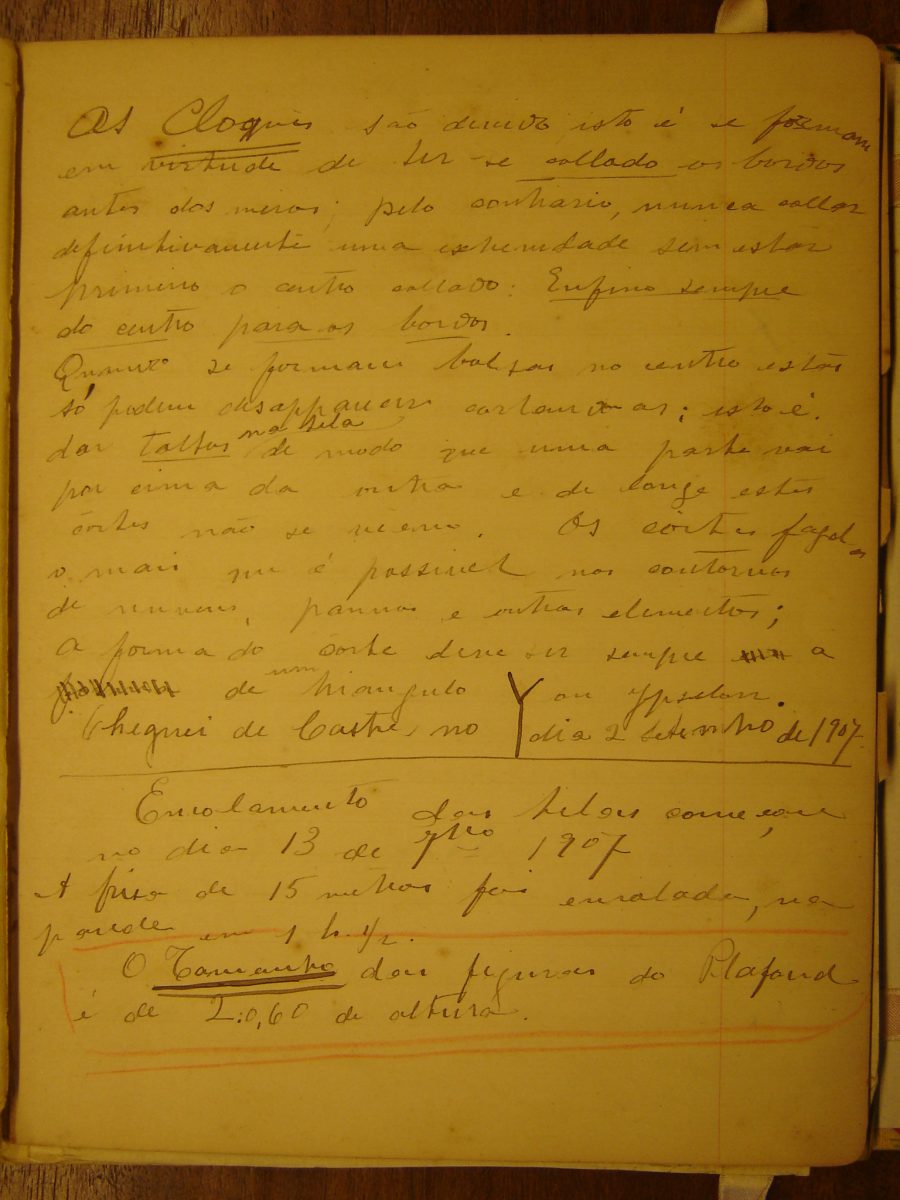 As Cloques são devido isto é se formam
em virtude de ter-se collado os bordos
antes dos meios; pelo contrario, nunca collar
definitivamente uma extremidade sem estar
primeiro o centro collado: Enfim sempre
do centro para os bordos.
Quando se formam bolsas no centro estas
só podem desapparecer cortando as; isto é.
dar talhos na tela de modo que uma parte vai
por cima da outra e de longe estes
córtes não se veem. Os córtes
o mais que é possivel nos contornos
de nuvens, pannos e outros elementos;
a forma do córte deve ser sempre a
de um triangulo Y ou Ypselon.
Cheguei de Castre, no dia 2 Setembro de 1907.
Enrolamento das telas começou
no dia 13 de 7bro 1907
A frisa de 15 metros foi enrolada, na
parede em 1 h. 1/2.
O Tamanho das figuras do Plafond
é de 2:0,60 de altura.